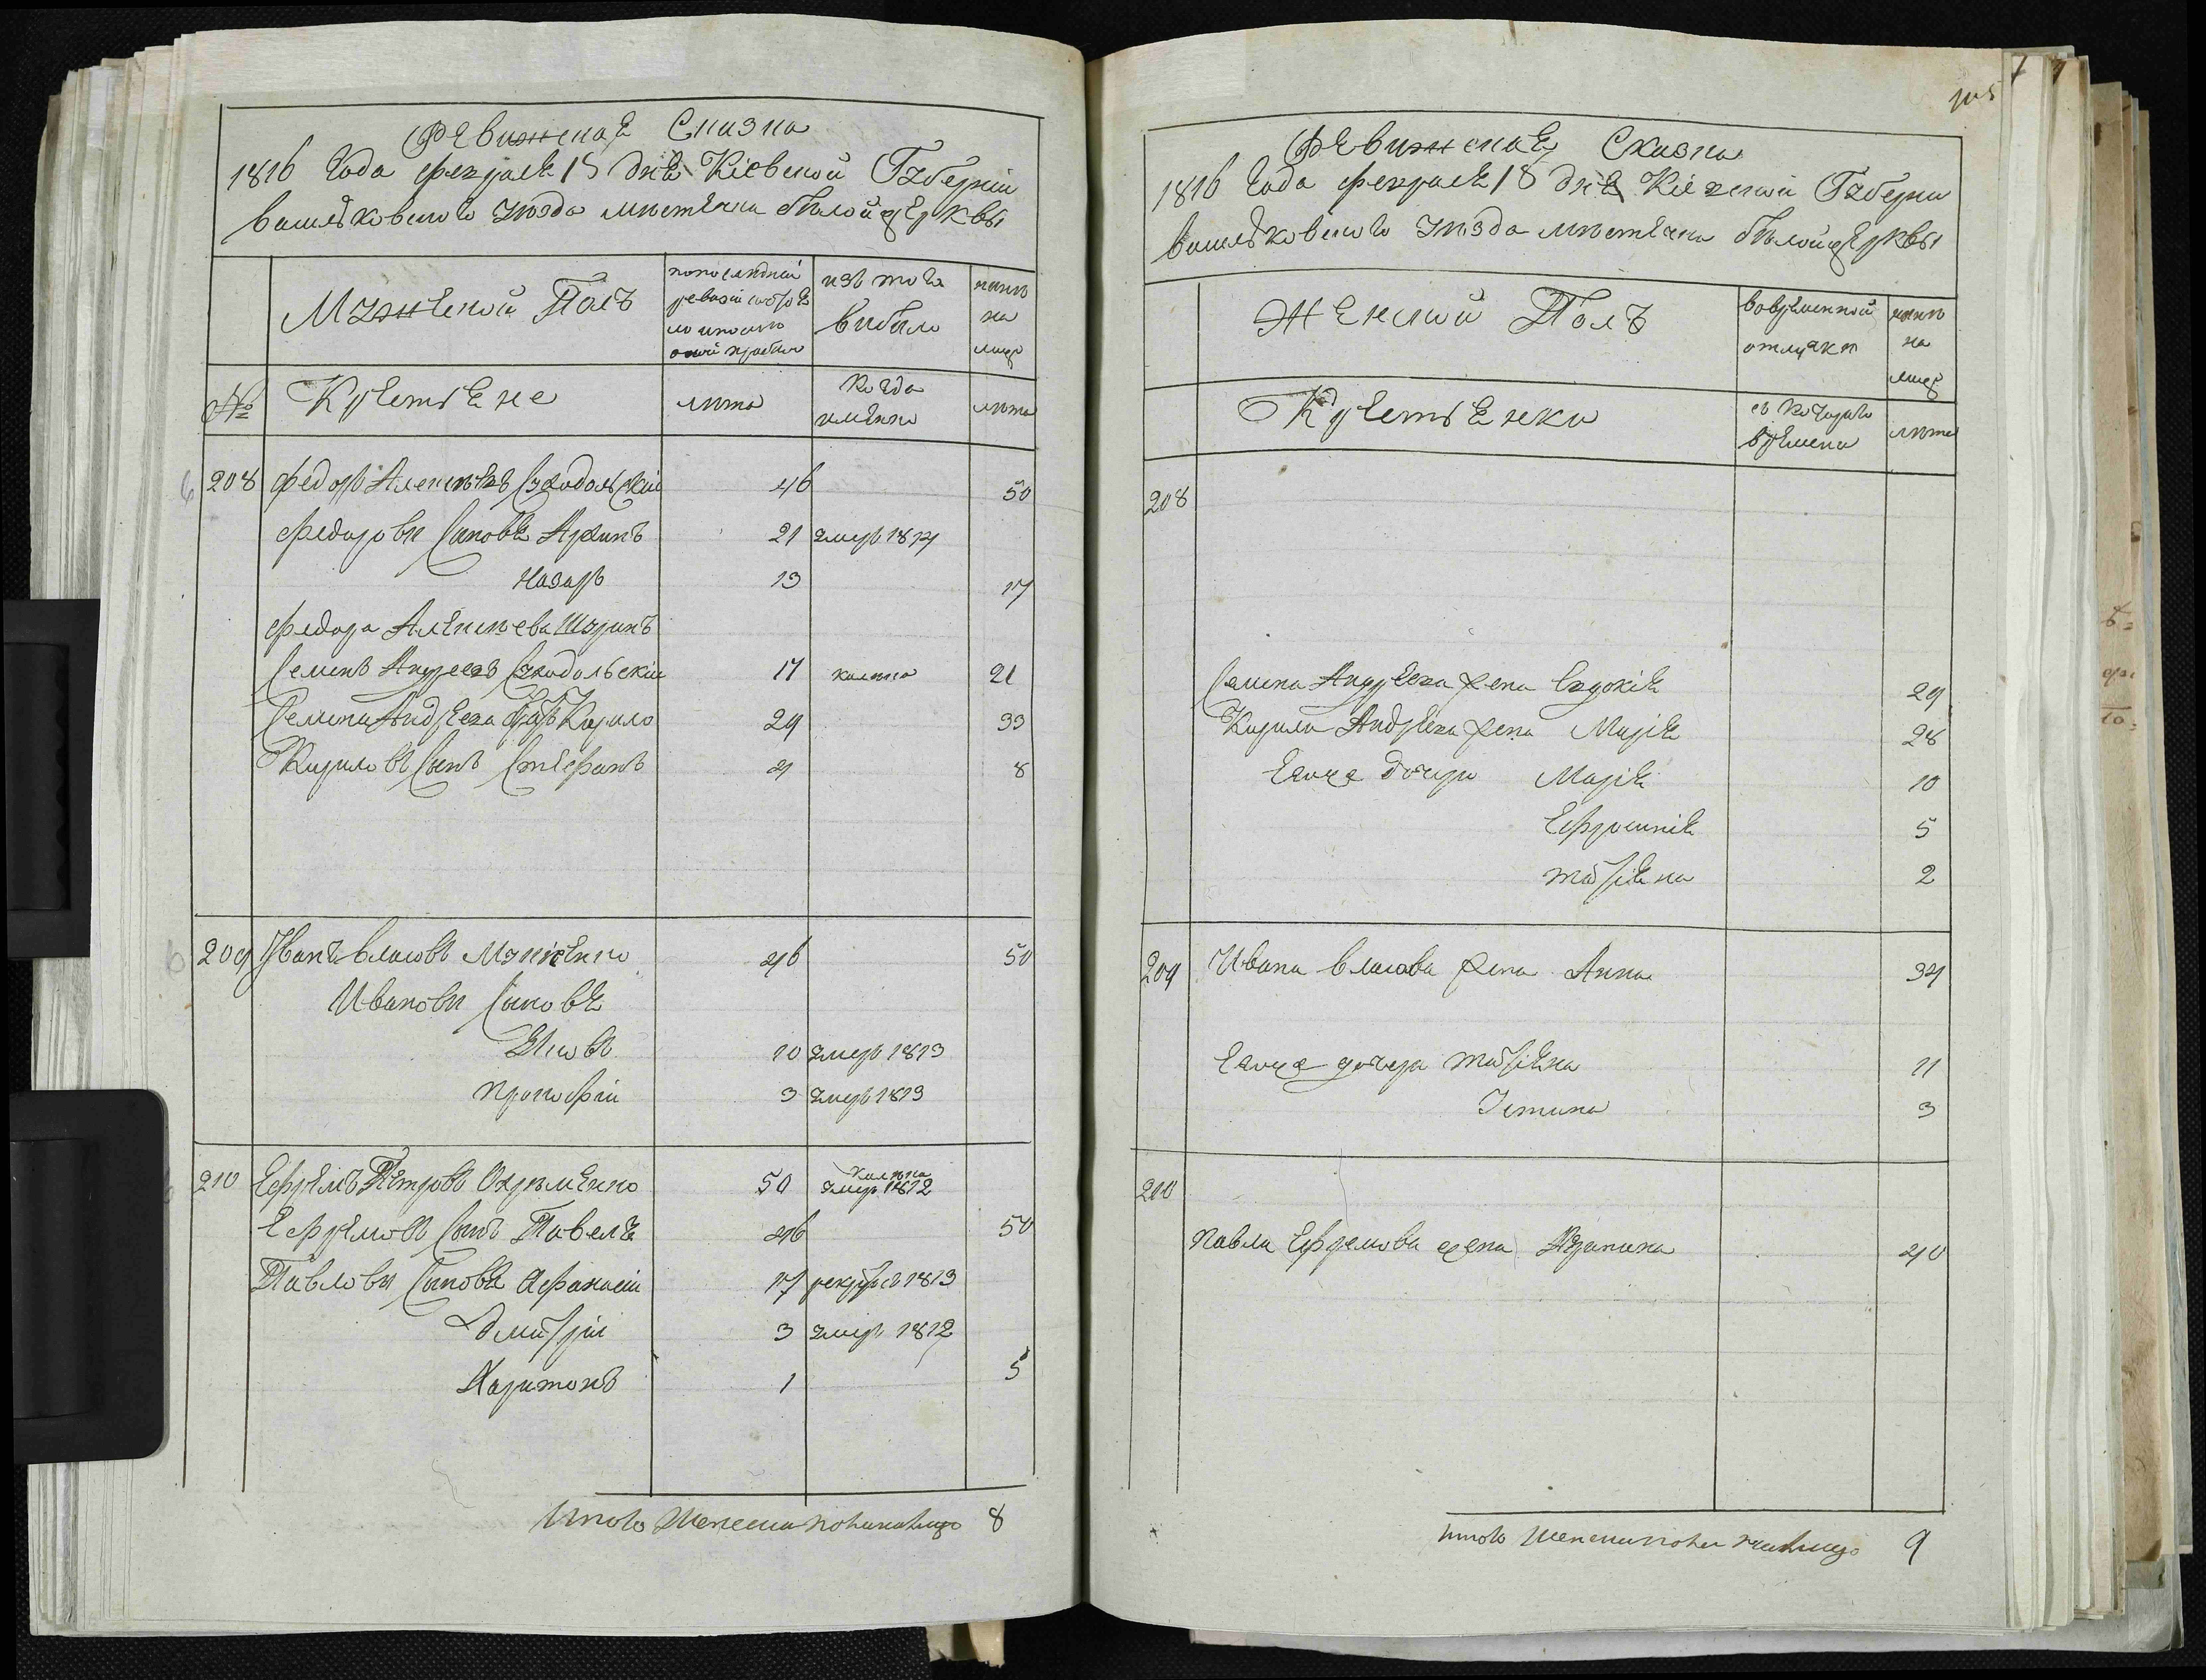 Ревижская Сказка
1816 года февраля 18 дня Кіевской Губерніи
василковского уезда местечка белой церквы
Мужеской Полъ
по последней
ревизіи состояло
и после
оной прибыло
изъ того
выбыло
ныне
на
лицо
№
Крестяне
лета
Когда
имянно
лета
208 Федоръ Алексеевъ Суходольскій 46 50
Федоровы Сыновя Архипъ 21 умеръ 1814
Назаръ 13 17
Федора Алексеева Шуринъ
Семенъ Андреевъ Суходольскій 17 калека 21
Семена Андреева братъ Кирило 29 33
Кириловъ Сынъ Стефанъ 4 8
209 Иванъ власовъ 46 50
Ивановы Сыновя
Яковъ 10 умеръ 1813
Прокофій 3 умеръ 1813
210 Ефремъ Петровъ Охрименко 50 калека умеръ 1812
Ефремовъ Сынъ Павелъ 46 50
Павловы Сыновя Афанасій 17 рекрутъ 1813
Дмитрій 3 умеръ 1812
Харитонъ 1 5
Итого на лицо 8
105
Ревижская Сказка
1816 года февраля 18 дня Кіевской Губерни
василковского уезда местечка белой церквы
Женской Полъ
во временной
отлучке
ныне
на
лицо
Крестянки
съ Которого
времени
лета
208
Семена Андреева жена Евдокія 29
Кирила Андреева жена Марія 28
Евоже дочери Марія 10
Ефросинія 5
татіяна 2
209 Ивана власова жена Анна 34
Евоже дочери татіяна 11
Устина 3
210
Павла Ефремова жена 40
итого женска пола на лицо 9